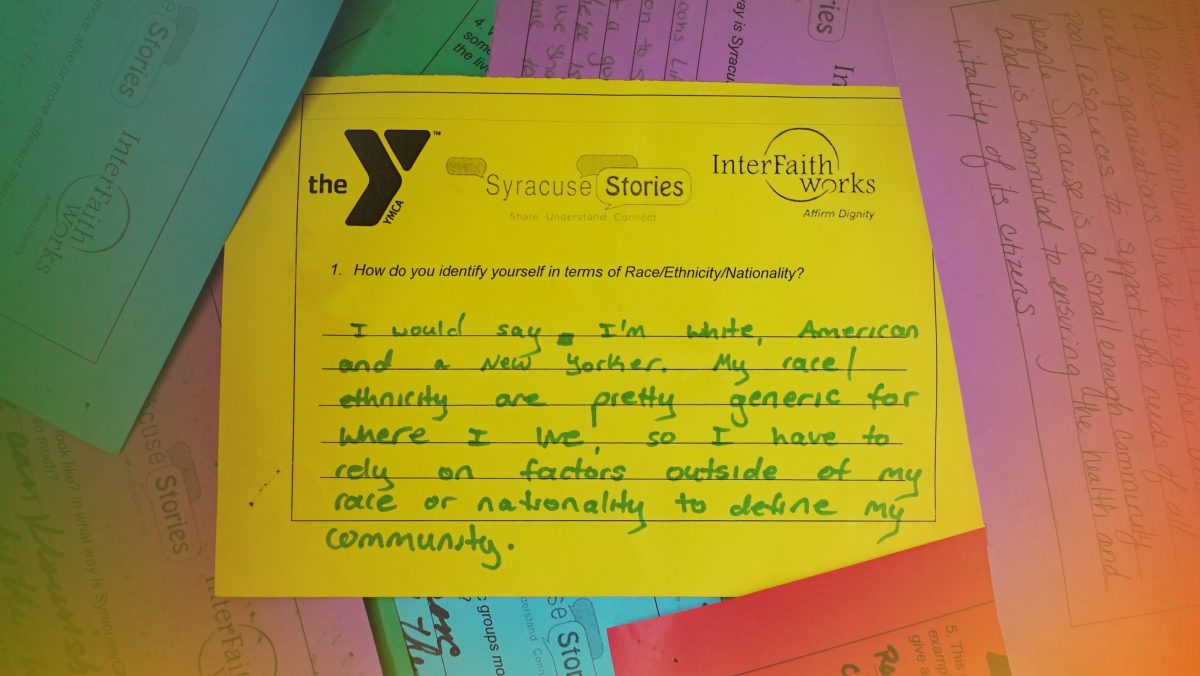 the
YMCA
™
Syracuse Stories
Share. Understand. Connect.
InterFaith
works
Affirm Dignity
1. How do you identify yourself in terms of Race/Ethnicity/Nationality?
I would say I'm white, American
and a New Yorker. My race/
ethnicity are pretty generic for
where I live, so I have to
rely on factors outside of my
race or nationality to define my
community.
A good community
and organizations work together
pool resources to support the needs of all
people. Syracuse is a small enough community
and is committed to ensuring the health and
vitality of its citizens.
more alike or more different than
Stories
InterFaith
works
Affirm Dignity
4.
some
the
ries
In
way is Syracuse
look like? In what way is Syracuse
so much?
cuse Stories
InterFai
groups mo
derstand. Conn
se
Stor
5. This
examp
give a